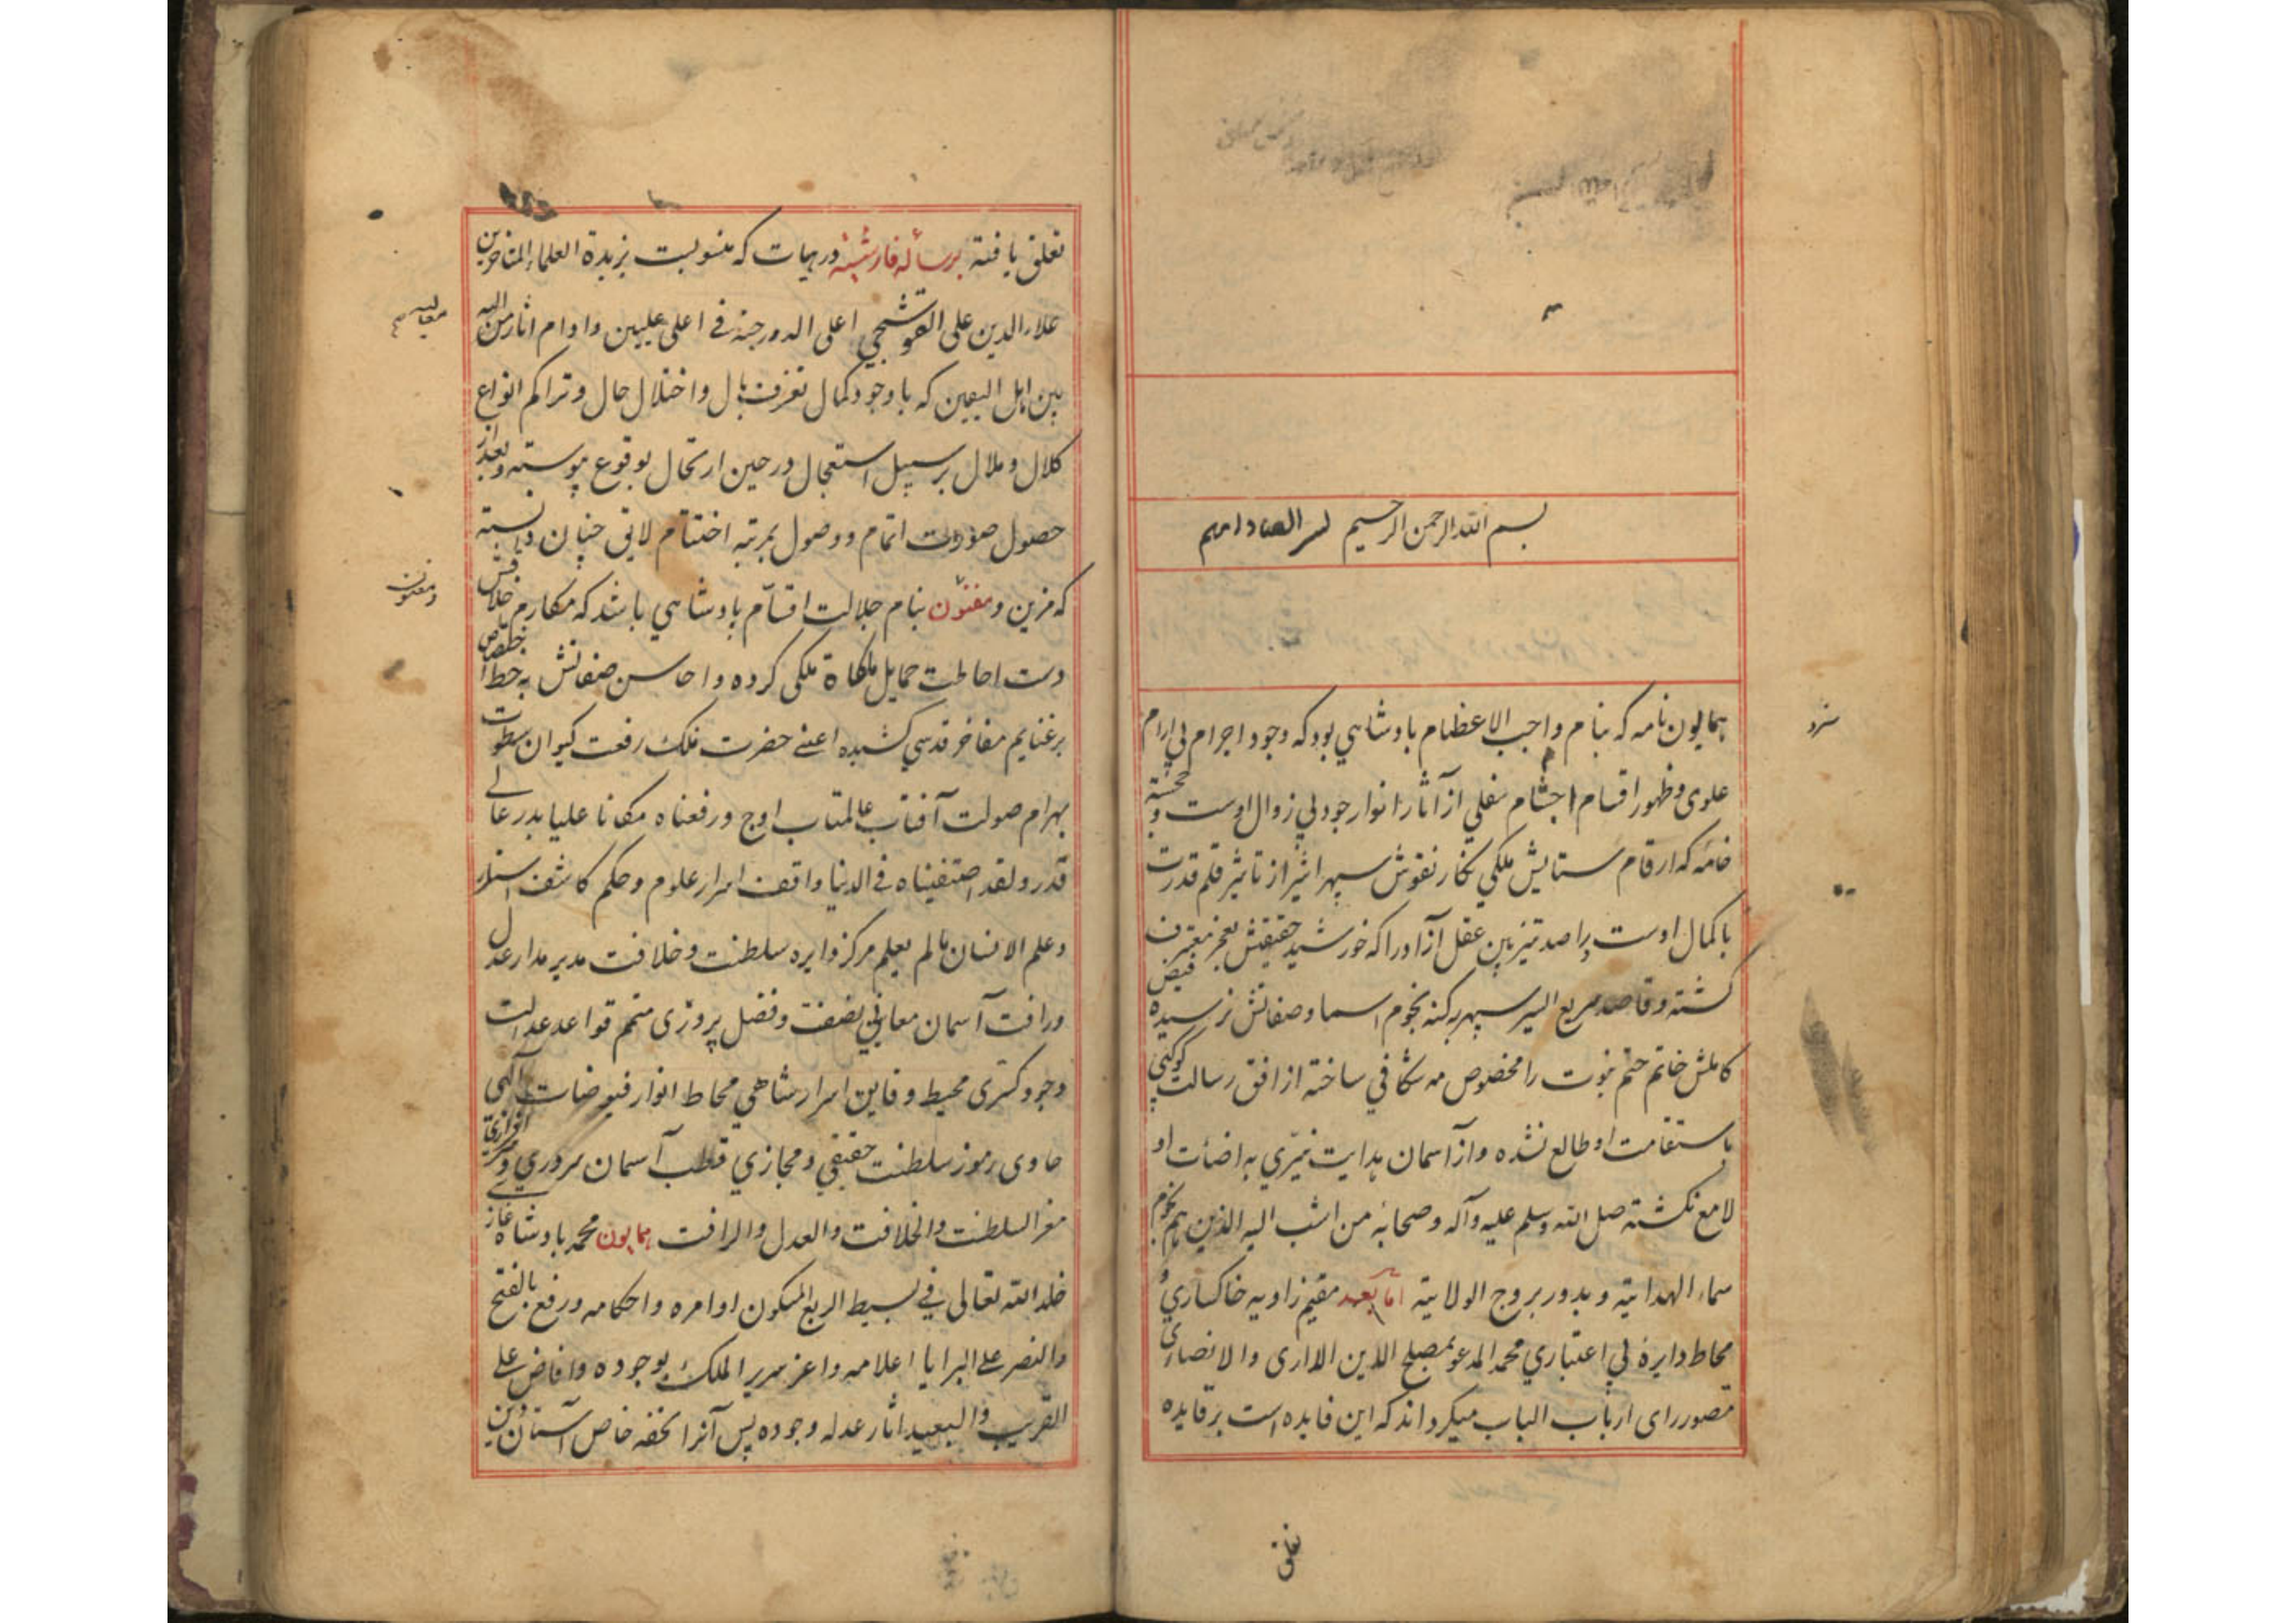 بسم الله الرحمن الرحیم
همایون نامه که بنام واجب الاعظام بادشاهی بود که وجود اجرام بی آرام
علوی و ظهور اقسام اجسام سفلی از آثار انوار جود بی زوال اوست و خجسته
خامه که ارقام ستایش ملکی نکار نقوش سپهر اثیر از تاثیر قلم قدرت
با کمال اوست راصد تیزبین عقل آزاد را که خورشید حقیقتش بعجز معترف
کشته و قاصد سریع السیر سپهر بکنه نجوم اسما و صفاتش نرسیده فیض
کاملش خاتم ختم نبوت را مخصوص مه شکافی ساخته از افق رسالت کوکبی
باستقامت او طالع نشده و از آسمان هدایت نیری به اضائت او
لامع نکشته صلی الله وسلم علیه وآله وصحابه من انتسب الیه الذین هم نجوم
سماء الهدایة و بدور بروج الولایة اما بعد مقیم زاویه خاکساری و
محاط دایرۀ بی اعتباری محمد المدعو بمصلح الدین اللاری والانصاری
مصور رای ارباب الباب میکرداند که این فایده است برقایده
تعلق
تعلق یافته برساله فارسیه در هیات که منسوبست بزبدة العلماء المتاخرین
علاء الدین علی القوشجی اعلی الله درجته فی اعلی علیین و ادام اثار من الله
بین اهل الیقین که با وجود کمال تفرق بال و اختلال حال و تراکم انواع
کلال و ملال بر سبیل استعجال در حین ارتحال بوقوع پیوسته و بعد از
حصول صورت اتمام و وصول بمرتبه اختتام لایق چنان دانسته
که مزین و مفنون بنام جلالت اقسام بادشاهی باشد که مکارم خلاقش
دست احاطت حمایل ملکاة ملکی کرده و احاسن صفاتش به خط اختصاص
بر غنایم مفاخر قدسی کشیده اعنی حضرت فلک رفعت کیوان سطوت
بهرام صولت آفتاب عالمتاب اوج ورفعناه مکانا علیا بدر عالی
قدر ولقد اصطفیناه فی الدنیا واقف اسرار علوم و حکم کاشف استار
وعلم الانسان مالم یعلم مرکز دایره سلطنت و خلافت مدیر مدار عدل
ورافت آسمان معانی نصفت و فضل پروری متمم قواعد عدالت
وجود کستری محیط دقایق اسرار شاهی محاط انوار فیوضات آلهی
حاوی رموز سلطنت حقیقی و مجازی قطب آسمان سروری و
مغز السلطنت والخلافت والعدل والرافت همایون محمد بادشاه غازی
خلد الله تعالی فی بسیط الربع المسکون اوامره واحکامه ورفع بالفتح
والنصر علی البرایا اعلامه واعز سریر الملک بوجوده وافاض علی
القریب والبعید اثار عدله وجوده پس آنرا تحفه خاص آستان